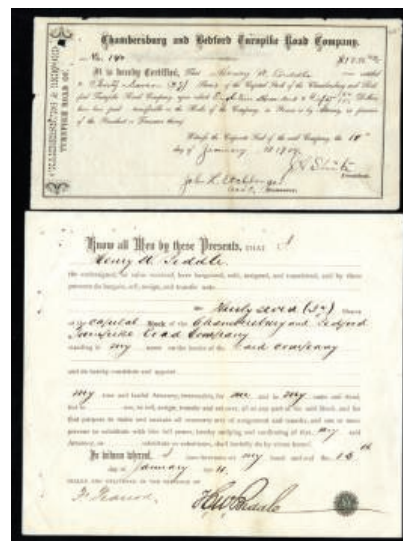 Chambersburg and Bedford Turnpike Road Company.
No.
It is hereby Certified, That Henry is entitled
to Thirty Seven (37) Shares of the Capital Stock of the Chambersburg and Bed-
ford Turnpike Road Company, upon which Dollars
have been paid, transferable on the Books of the Company, in Person or by Attorney, in presence
of the President or Treasurer thereof.
Witness the Corporate Seal of the said Company, the
day of January
President.
John L.
Treasurer.
CHAMBERSBURG & BEDFORD
TURNPIKE ROAD CO.
Know all Men by these Presents, THAT I
Henry
the undersigned, for value received, have bargained, sold, assigned, and transferred, and by these
presents do bargain, sell, assign, and transfer unto
Thirty seven (37) Shares
of capital Stock of the Chambersburg and Bedford
Turnpike Road Company
standing in my name on the books of the said company
and do hereby constitute and appoint
my true and lawful Attorney, irrevocable, for me and in my name and stead,
but to use, to sell, assign, transfer and set over, all or any part of the said Stock, and for
that purpose to make and execute all necessary acts of assignment and transfer, and one or more
persons to substitute with like full power, hereby ratifying and confirming all that my said
Attorney, or substitute or substitutes, shall lawfully do by virtue hereof.
In witness whereof, I have hereunto set my hand and seal the
day of January
SEALED AND DELIVERED IN THE PRESENCE OF